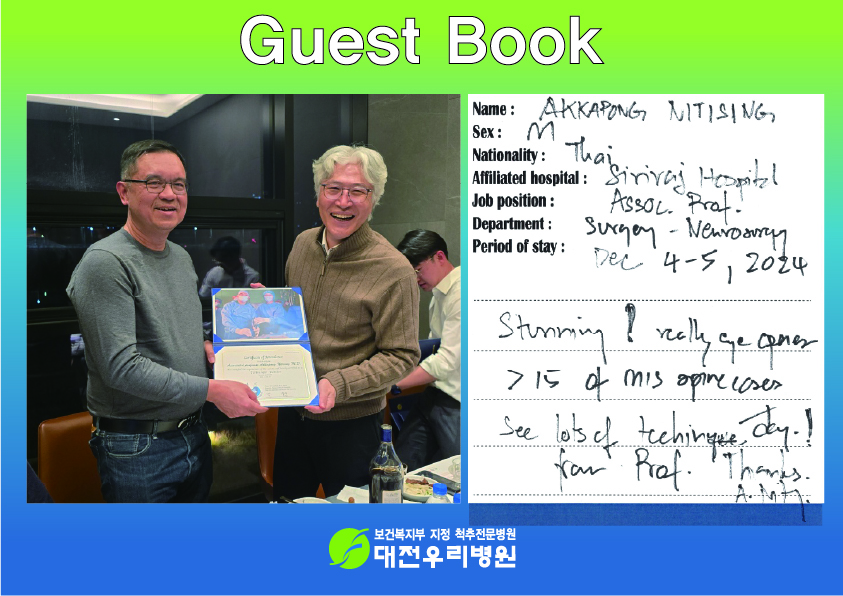 Guest Book
Name : AKKAPONG NITISING
Sex : M
Nationality : Thai
Affiliated hospital : Siriraj Hospital
Job position : Assoc. Prof.
Department : Surgery - Neurosurgery
Period of stay : Dec 4-5, 2024
Stunning! really eye opener
> 15 of MIS spine cases
See lots of techinque, Day.!
from Prof. Thanks.
보건복지부 지정 척추전문병원
대전우리병원